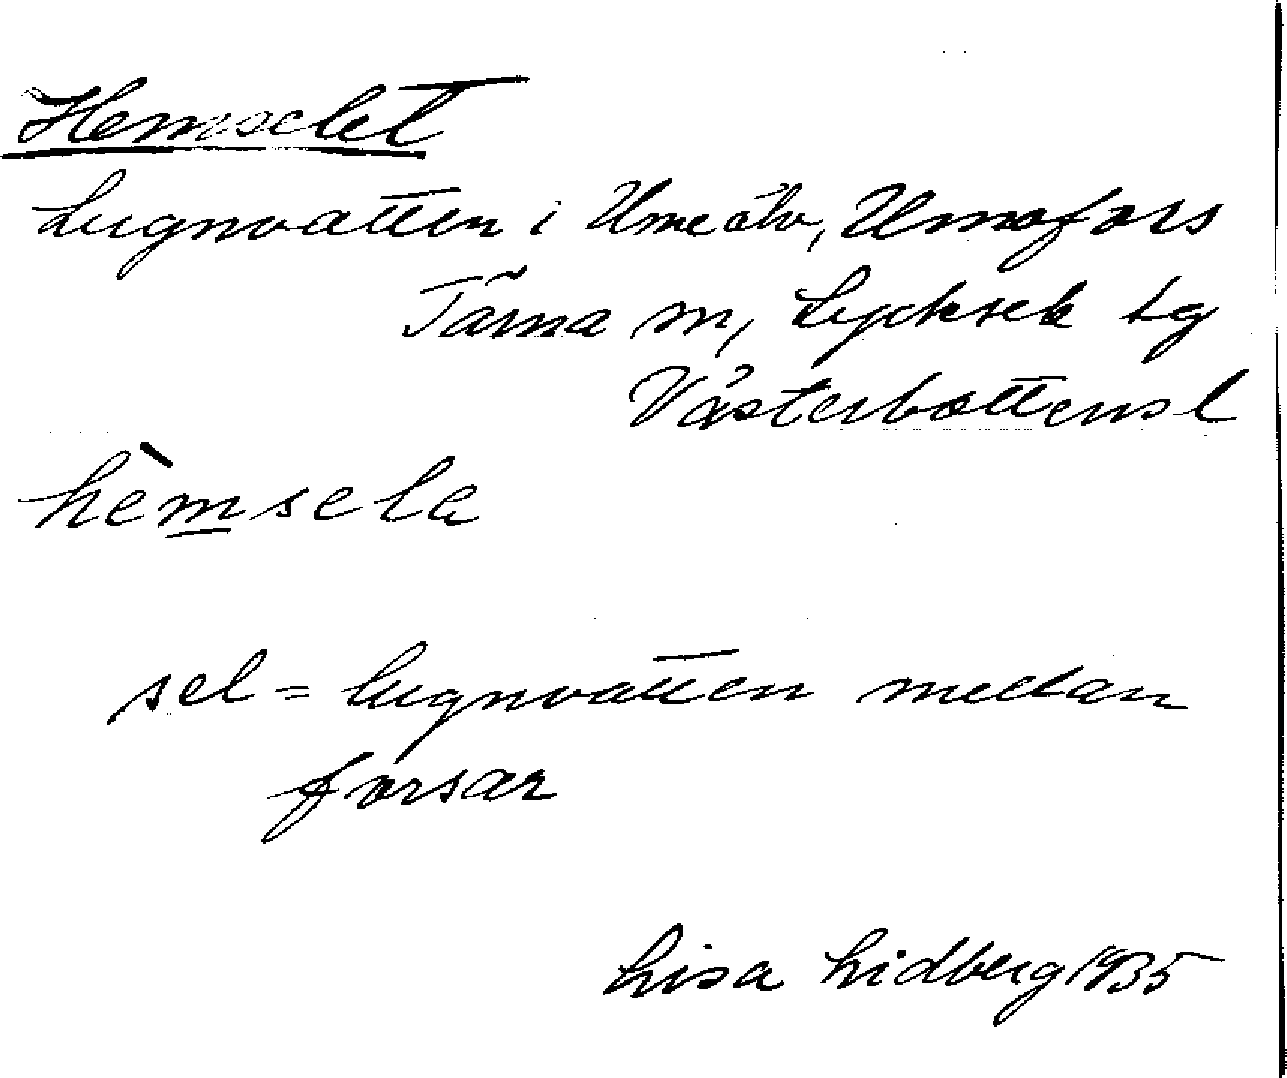 Hemselet
Lugnvatten i Umeälv, Umafors
Tärna sn, Lycksele tg
Västerbottens l
hèmsela
sel = lugnvatten mellan
forsar
Lisa Lidberg 1935